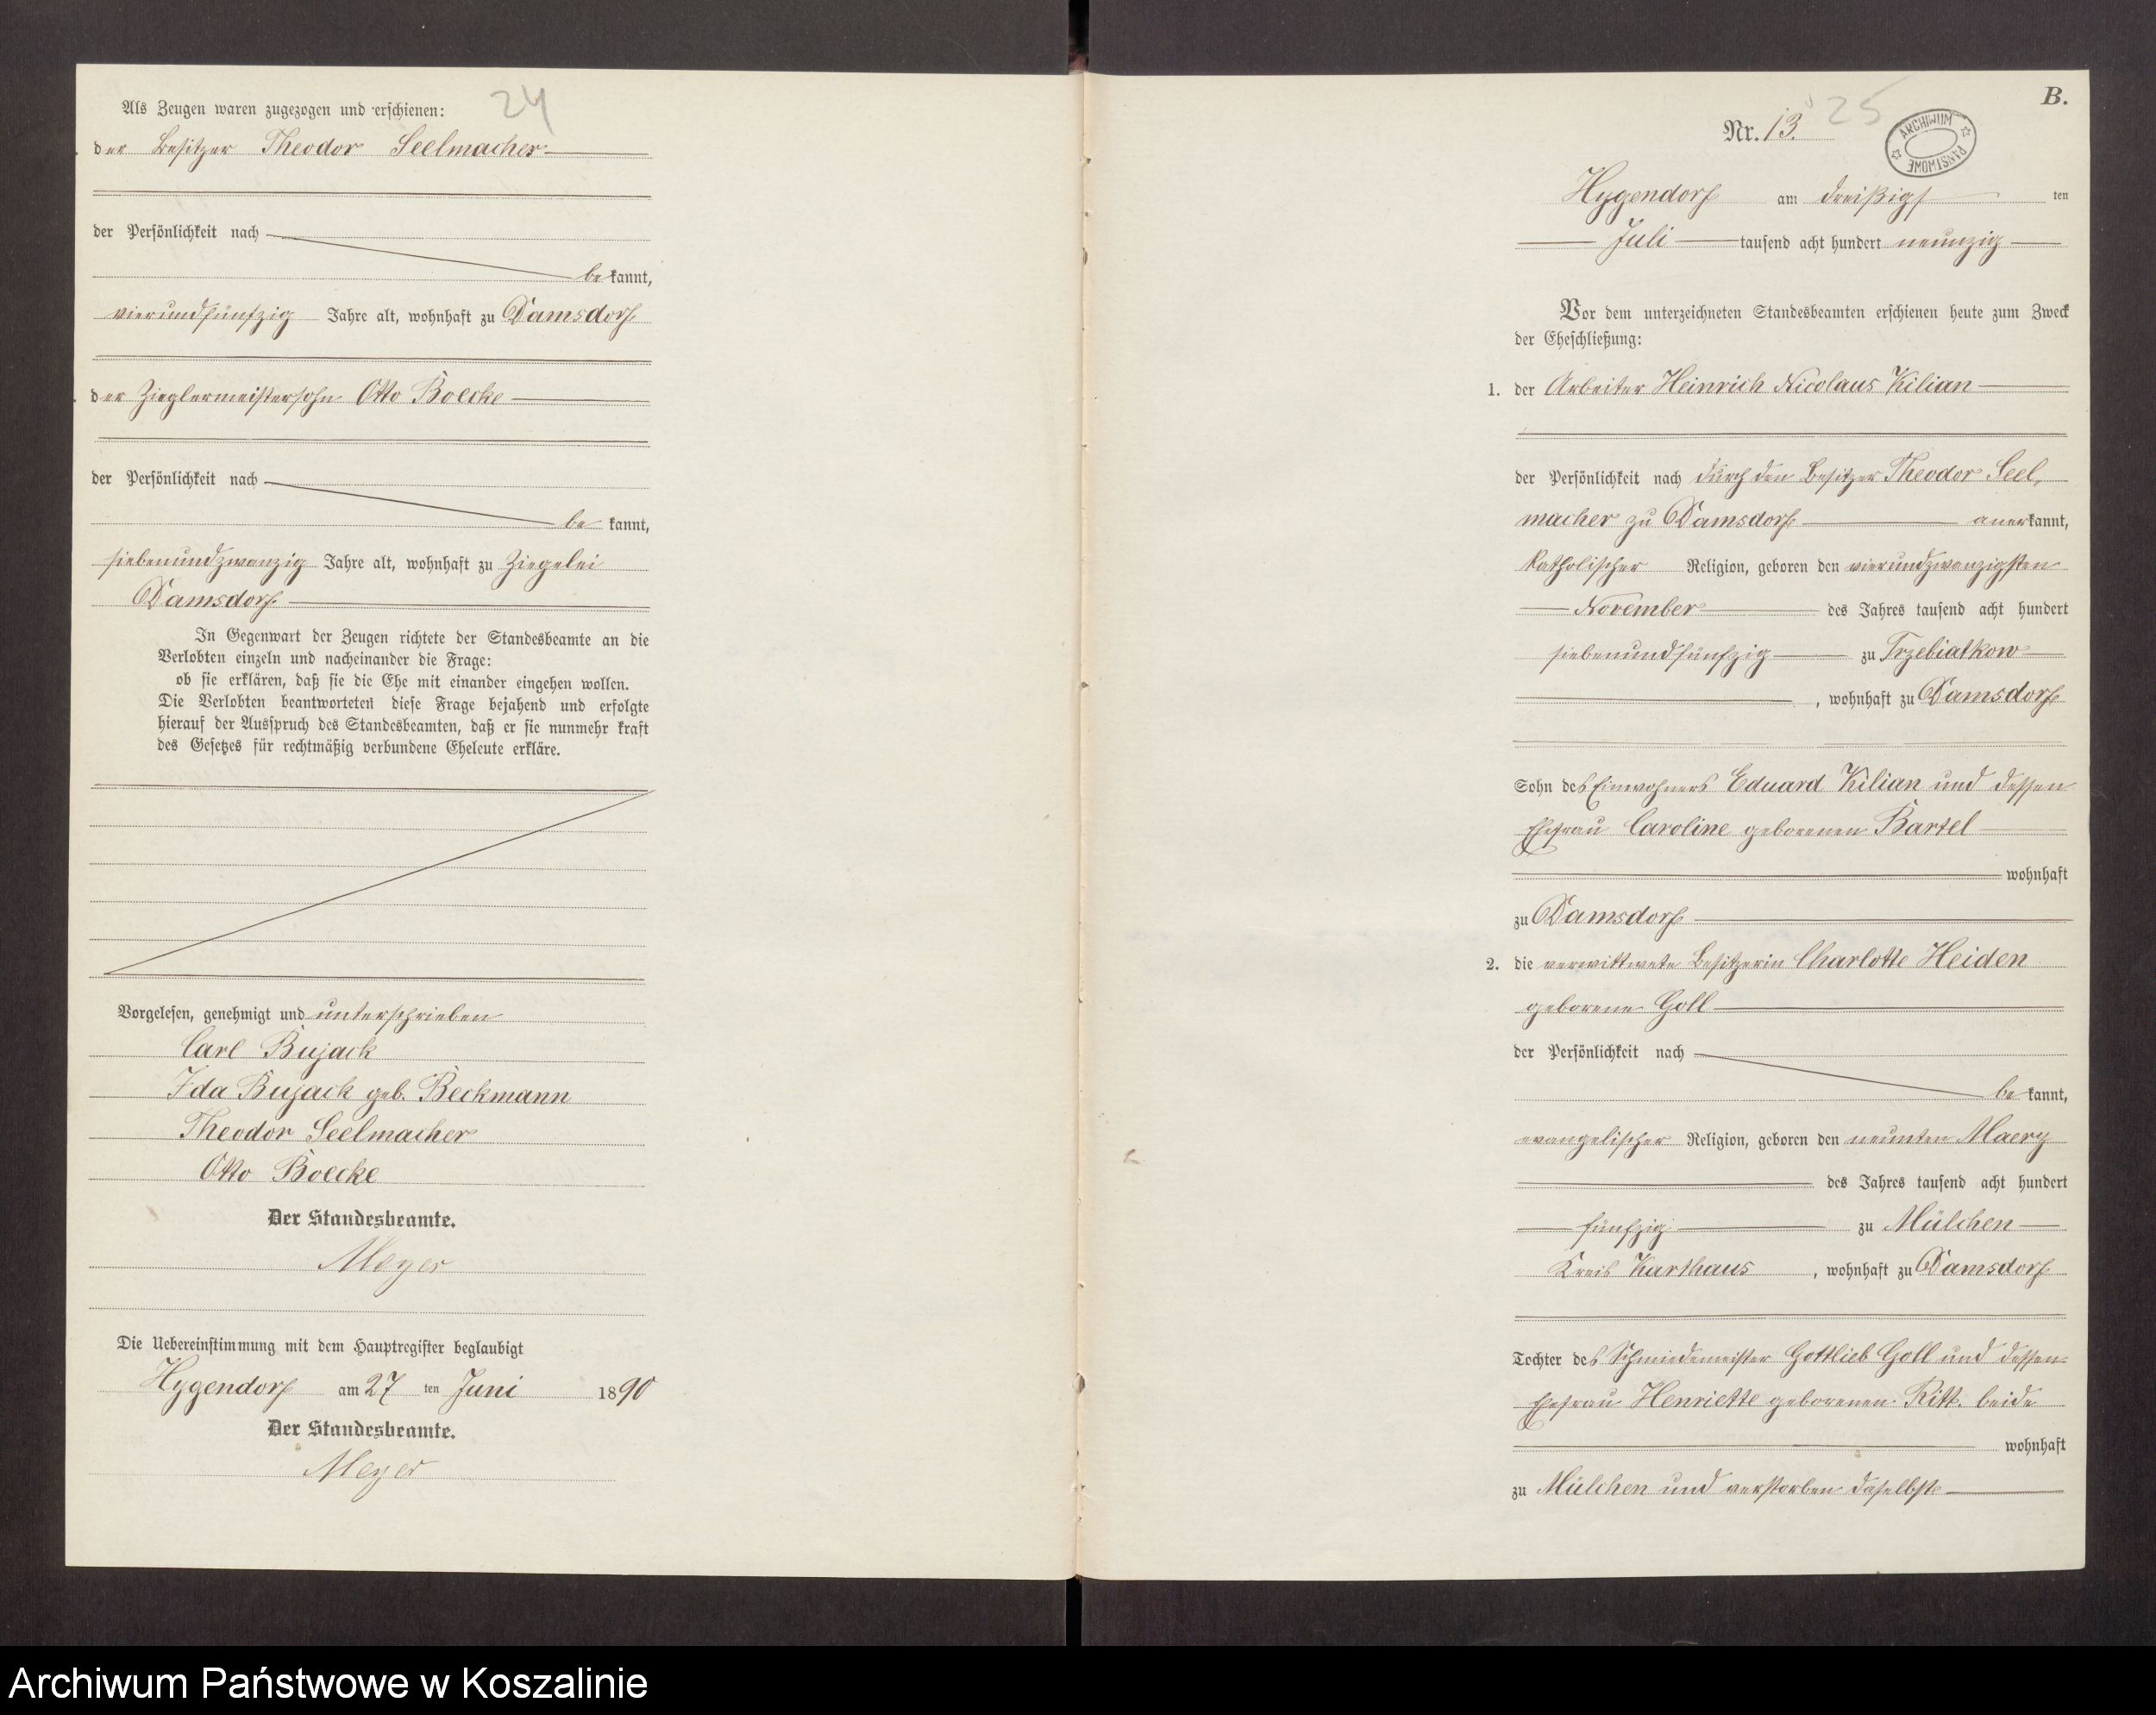 24
Als Zeugen waren zugezogen und erschienen:
der Besitzer Theodor Seelmacher
der Persönlichkeit nach
be kannt,
vierundfünfzig Jahre alt, wohnhaft zu Damsdorf
der Zieglermeistersohn Otto Boecke
der Persönlichkeit nach
be kannt,
siebenundzwanzig Jahre alt, wohnhaft zu Ziegelei
Damsdorf
In Gegenwart der Zeugen richtete der Standesbeamte an die
Verlobten einzeln und nacheinander die Frage:
ob sie erklären, daß sie die Ehe mit einander eingehen wollen.
Die Verlobten beantworteten diese Frage bejahend und erfolgte
hierauf der Ausspruch des Standesbeamten, daß er sie nunmehr kraft
des Gesetzes für rechtmäßig verbundene Eheleute erkläre.
Vorgelesen, genehmigt und unterschrieben
Carl Bujack
Ida Bujack geb. Beckmann
Theodor Seelmacher
Otto Boecke
Der Standesbeamte.
Meyer
Die Uebereinstimmung mit dem Hauptregister beglaubigt
Hygendorf am 27 ten Juni 1890
Der Standesbeamte.
Meyer
B.
25
Nr. 13.
ARCHIWUM PAŃSTWOWE
Hygendorf am dreißigs ten
Juli tausend acht hundert neunzig
Vor dem unterzeichneten Standesbeamten erschienen heute zum Zweck
der Eheschließung:
1. der Arbeiter Heinrich Nicolaus Kilian
der Persönlichkeit nach durch den Besitzer Theodor Seel,
macher zu Damsdorf anerkannt,
katholischer Religion, geboren den vierundzwanzigsten
November des Jahres tausend acht hundert
siebenundfünfzig zu Trzebiatkow
, wohnhaft zu Damsdorf
Sohn des Einwohners Eduard Kilian und dessen
Ehefrau Caroline geborenen Bartel
wohnhaft
zu Damsdorf
2. die verwittwete Besitzerin Charlotte Heiden
geborene Goll
der Persönlichkeit nach
be kannt,
evangelischer Religion, geboren den neunten Maerz
des Jahres tausend acht hundert
fünfzig zu Mülchen
Kreis Karthaus , wohnhaft zu Damsdorf
Tochter des Schmiedemeister Gottlieb Goll und dessen
Ehefrau Henriette geborenen Ritt. beide
wohnhaft
zu Mülchen und verstorben daselbst
Archiwum Państwowe w Koszalinie